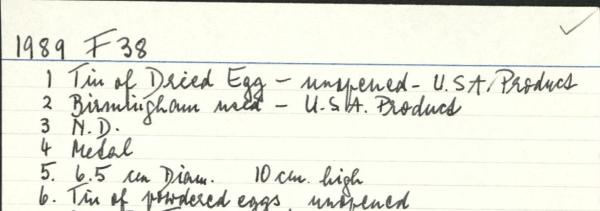 1989 F38
1 Tin of Dried Egg – unopened – U.S.A. Product
2 Birmingham used – U.S.A. Product
3 N.D.
4 Metal
5. 6.5 cm Diam. 10 cm. high
6. Tin of powdered eggs, unopened